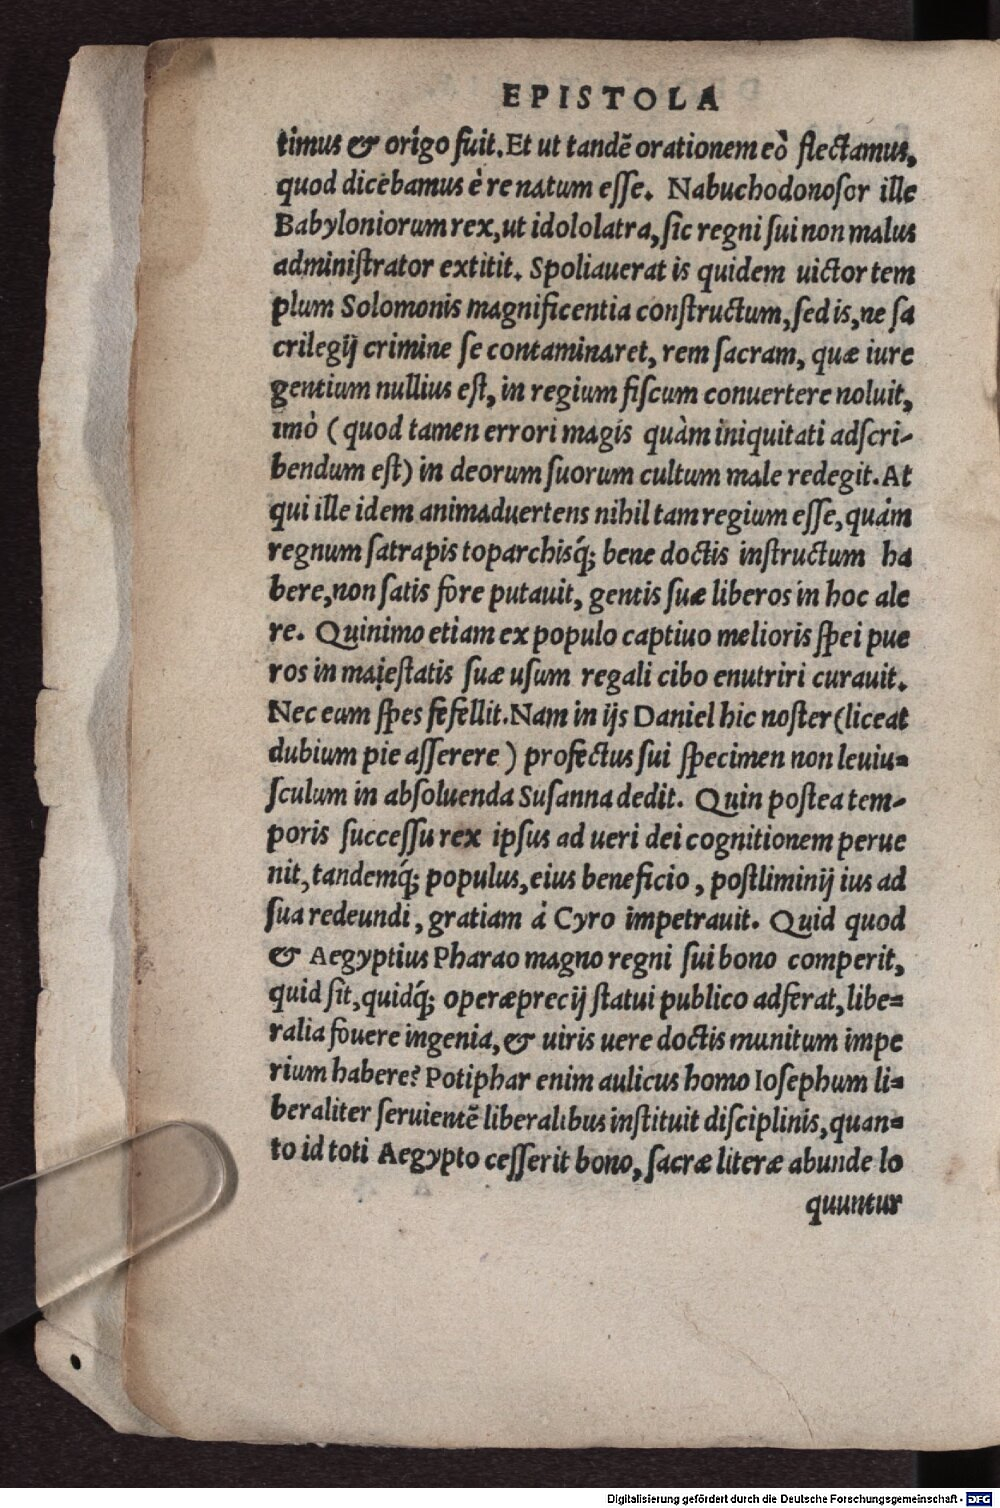 EPISTOLA
timus & origo fuit. Et ut tandē orationem eò flectamus,
quod dicebamus è re natum esse. Nabuchodonosor ille
Babyloniorum rex, ut idololatra, sic regni sui non malus
administrator extitit. Spoliauerat is quidem uictor tem
plum Solomonis magnificentia constructum, sed is, ne sa
crilegij crimine se contaminaret, rem sacram, quæ iure
gentium nullius est, in regium fiscum conuertere noluit,
imò (quod tamen errori magis quàm iniquitati adscri-
bendum est) in deorum suorum cultum male redegit. At
qui ille idem animaduertens nihil tam regium esse, quàm
regnum satrapis toparchisq́; bene doctis instructum ha
bere, non satis fore putauit, gentis suæ liberos in hoc ale
re. Quinimo etiam ex populo captiuo melioris spei pue
ros in maiestatis suæ usum regali cibo enutriri curauit.
Nec eum spes fefellit. Nam in ijs Daniel hic noster (liceat
dubium pie asserere) profectus sui specimen non leuiu=
sculum in absoluenda Susanna dedit. Quin postea tem-
poris successu rex ipsus ad ueri dei cognitionem perue
nit, tandemq́; populus, eius beneficio, postliminij ius ad
sua redeundi, gratiam à Cyro impetrauit. Quid quod
& Aegyptius Pharao magno regni sui bono comperit,
quid sit, quidq́; operæprecij statui publico adferat, libe=
ralia fouere ingenia, & uiris uere doctis munitum impe
rium habere? Potiphar enim aulicus homo Iosephum li=
beraliter seruientē liberalibus instituit disciplinis, quan=
to id toti Aegypto cesserit bono, sacræ literæ abunde lo
quuntur
Digitalisierung gefördert durch die Deutsche Forschungsgemeinschaft - DFG